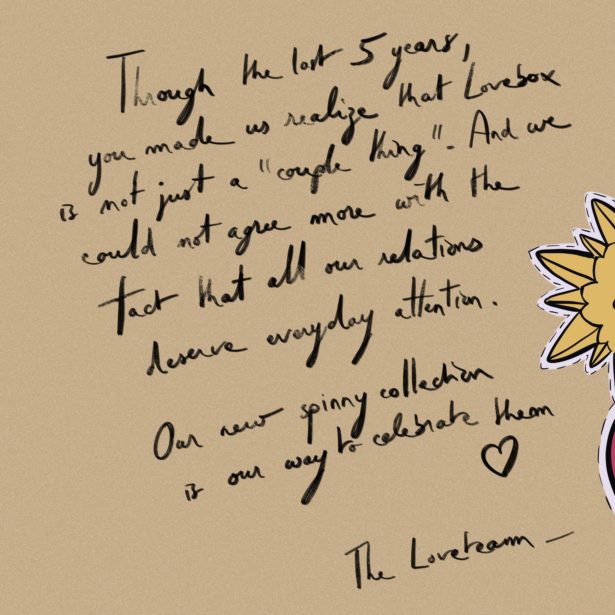 Through the last 5 years,
you made us realize that Lovebox
is not just a "couple thing". And we
could not agree more with the
fact that all our relations
deserve everyday attention.
Our new spinny collection
is our way to celebrate them
The Loveteam —